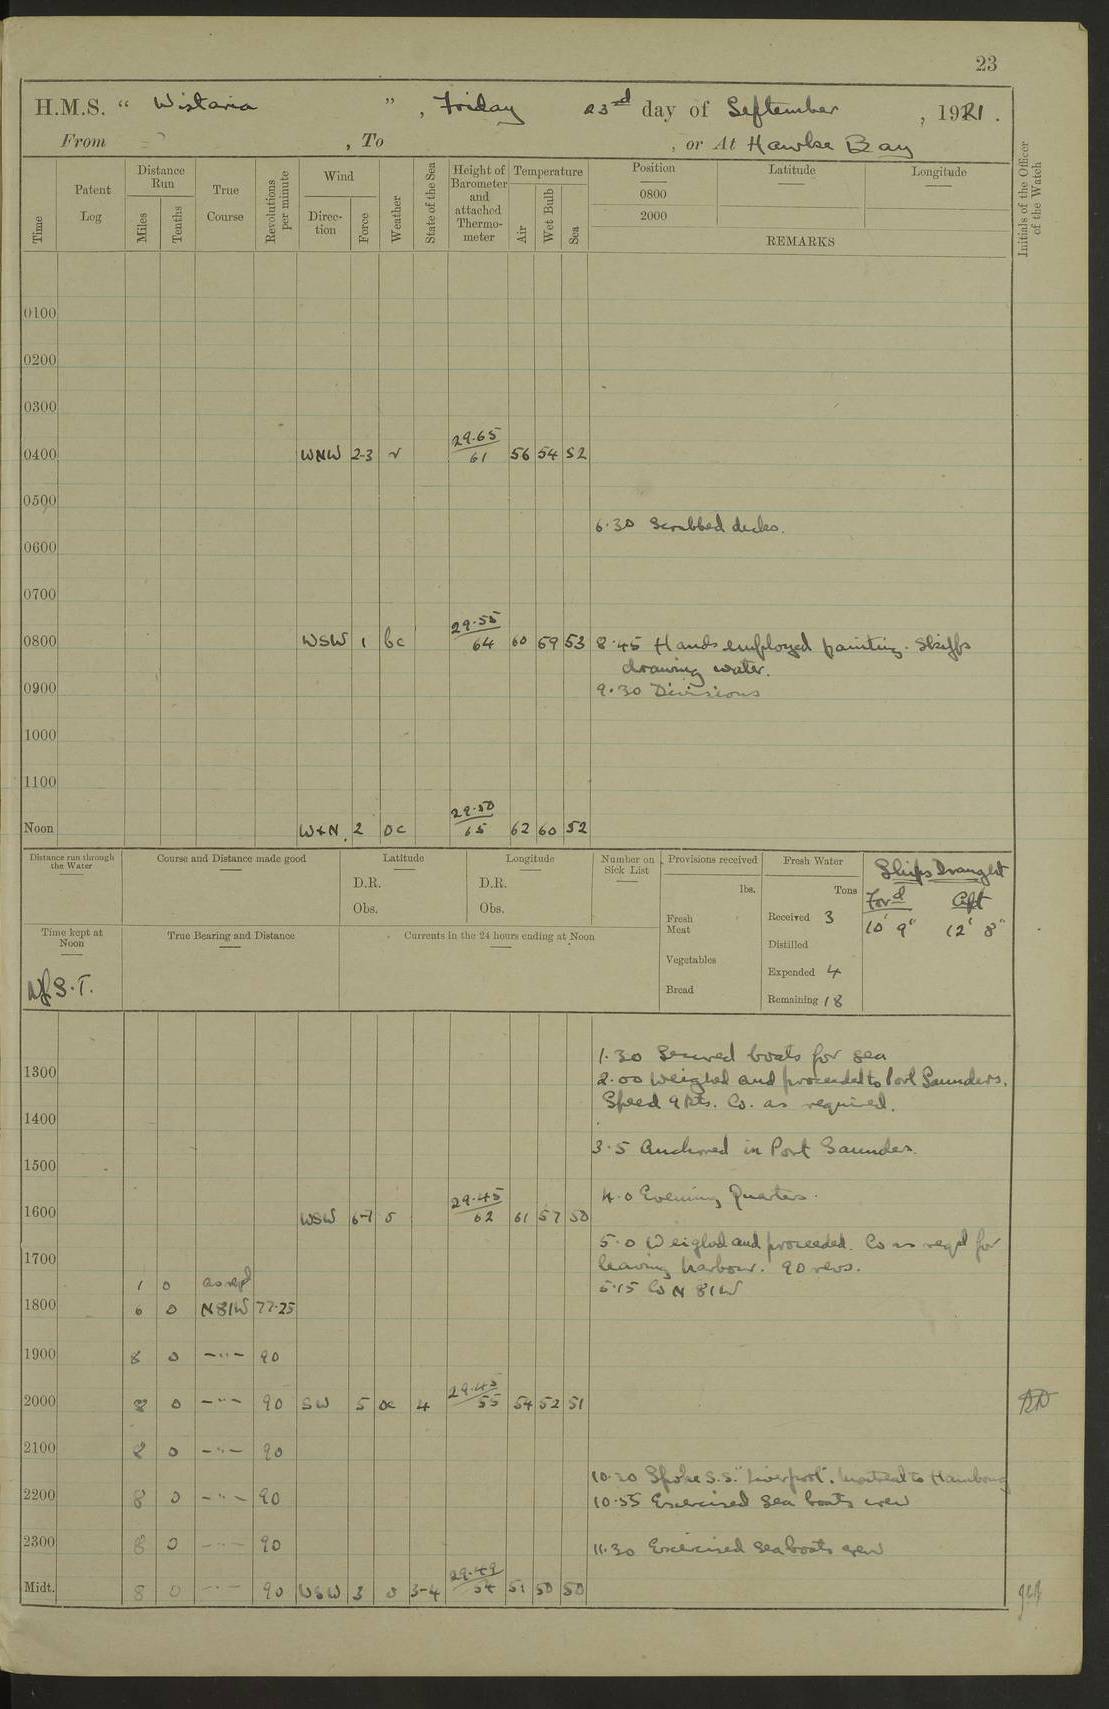 23
H.M.S. " Wistaria " , Friday 23rd day of September , 1921 .
From , To , or At Hawke Bay
Time
Patent Log
Distance Run
Miles
Tenths
True Course
Revolutions per minute
Wind
Direc-tion
Force
Weather
State of the Sea
Height of Barometer and attached Thermo-meter
Temperature
Air
Wet Bulb
Sea
Position
0800
2000
Latitude
Longitude
REMARKS
Initials of the Officer of the Watch
0100
0200
0300
0400 WNW 2-3 r 29.65 / 61 56 54 52
0500
6.30 Scrubbed decks.
0600
0700
0800 WSW 1 bc 29.55 / 64 60 59 53 8.45 Hands employed painting. Skiffs
drawing water.
0900 9.30 Divisions
1000
1100
Noon W+N 2 oc 29.50 / 65 62 60 52
Distance run through the Water
Course and Distance made good
Latitude
D.R.
Obs.
Longitude
D.R.
Obs.
Number on Sick List
Provisions received
lbs.
Fresh Meat
Vegetables
Bread
Fresh Water
Tons
Received 3
Distilled
Expended 4
Remaining 18
Ships Draught
For'd Aft
10' 9" 12' 8"
Time kept at Noon
Nf S.T.
True Bearing and Distance
Currents in the 24 hours ending at Noon
1.30 Secured boats for sea
1300
2.00 Weighed and proceeded to Port Saunders.
Speed 9 kts. Co. as required.
1400
3.5 Anchored in Port Saunders.
1500
4.0 Evening Quarters.
1600 WSW 6-7 o 29.45 / 62 61 57 50
5.0 Weighed and proceeded. Co as reqd for
1700 leaving harbour. 90 revs.
1 0 as reqd 5.15 Co N 81W
1800 6 0 N81W 77.25
1900 8 0 -"- 90
2000 8 0 -"- 90 SW 5 oc 4 29.45 / 55 54 52 51
2100 8 0 -"- 90
10.20 Spoke S.S. "Liverpool". Montreal to Hambourg
2200 8 0 -"- 90 10.55 Exercised sea boats crew
2300 8 0 -"- 90 11.30 Exercised sea boats crew
Midt. 8 0 -"- 90 WSW 3 o 3-4 29.49 / 54 51 50 50